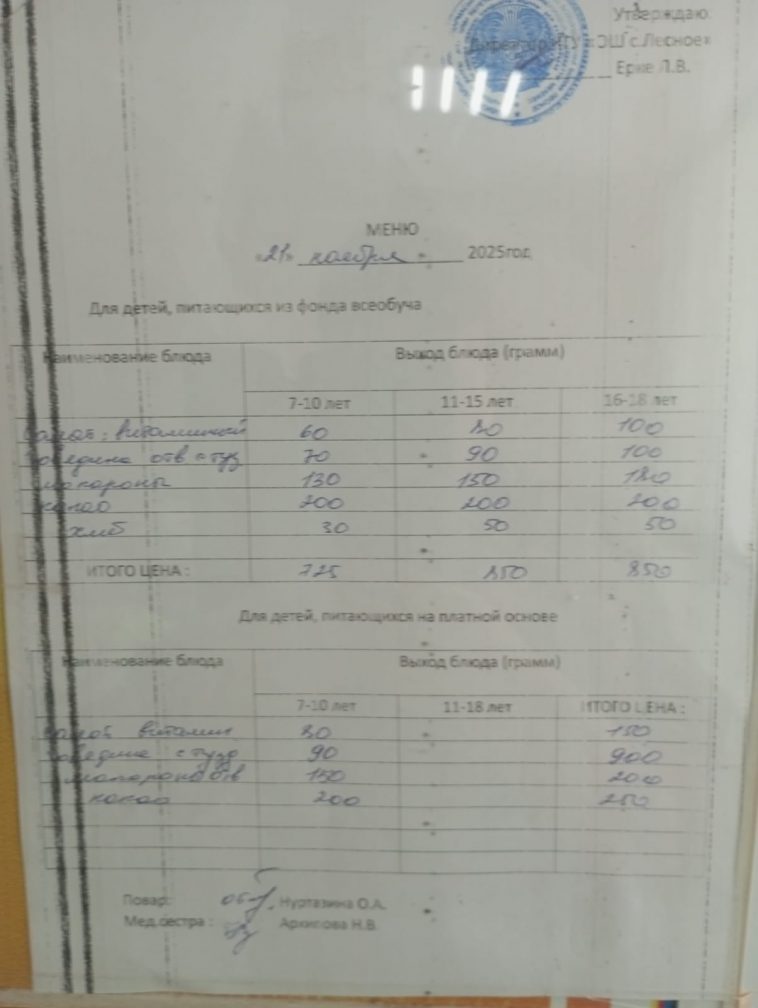 Утверждаю:
Директор ГУ «ОШ с.Лесное»
Ерке Л.В.
МЕНЮ
«21» ноября 2025год
Для детей, питающихся из фонда всеобуча
Наименование блюда Выход блюда (грамм)
7-10 лет 11-15 лет 16-18 лет
60 80 100
говядина отв с туш 70 90 100
макароны 130 150 180
какао 200 200 200
хлеб 30 50 50
ИТОГО ЦЕНА : 725 850 850
Для детей, питающихся на платной основе
Наименование блюда Выход блюда (грамм)
7-10 лет 11-18 лет ИТОГО ЦЕНА :
салат витамин. 80 150
говядина 90 900
150 200
какао 200 250
Повар: Нуртазина О.А.
Мед.сестра : Архипова Н.В.